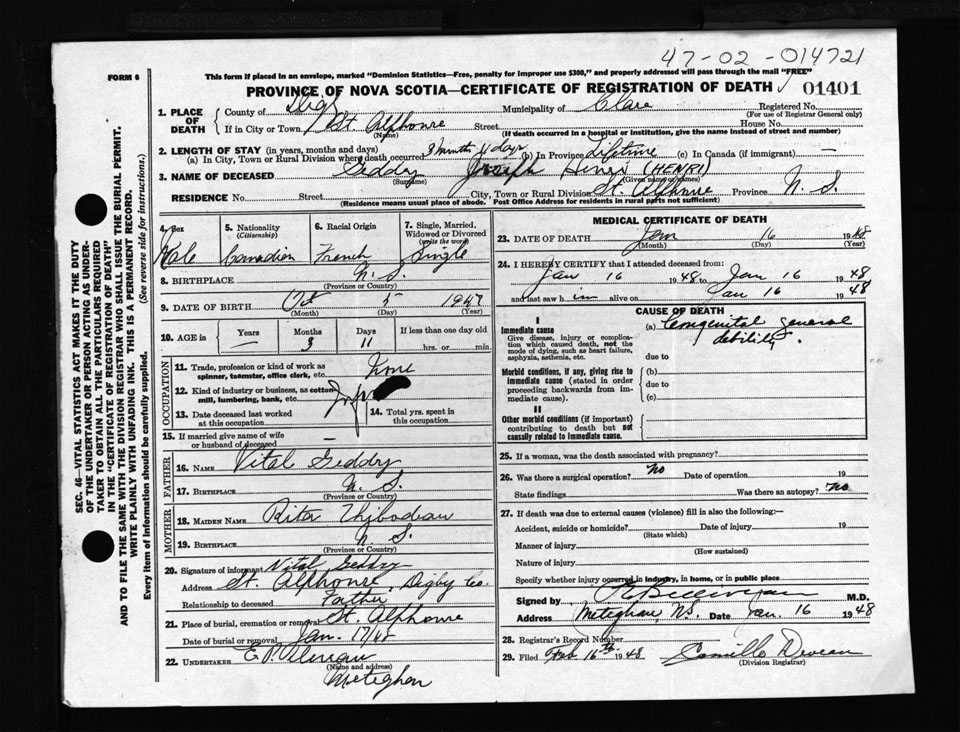 47-02-014721
FORM 6
This form if placed in an envelope, marked "Dominion Statistics—Free, penalty for improper use $300," and properly addressed will pass through the mail "FREE"
PROVINCE OF NOVA SCOTIA—CERTIFICATE OF REGISTRATION OF DEATH 01401
1. PLACE OF DEATH County of Digby Municipality of Clare Registered No.
(For use of Registrar General only)
If in City or Town St. Alphonse Street House No.
(Name) (If death occurred in a hospital or institution, give the name instead of street and number)
2. LENGTH OF STAY (in years, months and days)
(a) In City, Town or Rural Division where death occurred 3 months 11 days (b) In Province Lifetime (c) In Canada (if immigrant) —
3. NAME OF DECEASED Geddry Joseph Henri (HENRI)
(Surname) (Given name or names)
RESIDENCE No. Street City, Town or Rural Division St. Alphonse Province N. S.
(Residence means usual place of abode. Post Office Address for residents in rural parts not sufficient)
4. Sex Male
5. Nationality (Citizenship) Canadian
6. Racial Origin French
7. Single, Married, Widowed or Divorced (write the word) Single
8. BIRTHPLACE N. S.
(Province or Country)
9. DATE OF BIRTH Oct 5 1947
(Month) (Day) (Year)
10. AGE in Years — Months 3 Days 11 If less than one day old hrs. or min.
OCCUPATION
11. Trade, profession or kind of work as spinner, teamster, office clerk, etc. None
12. Kind of industry or business, as cotton mill, lumbering, bank, etc.
13. Date deceased last worked at this occupation
14. Total yrs. spent in this occupation
15. If married give name of wife or husband of deceased —
FATHER
16. NAME Vital Geddry
17. BIRTHPLACE N. S.
(Province or Country)
MOTHER
18. MAIDEN NAME Rita Thibodeau
19. BIRTHPLACE N. S.
(Province or Country)
20. Signature of informant Vital Geddry
Address St. Alphonse, Digby Co.
Relationship to deceased Father
21. Place of burial, cremation or removal St. Alphonse
Date of burial or removal Jan. 17/48
22. UNDERTAKER
(Name and address)
Meteghan
MEDICAL CERTIFICATE OF DEATH
23. DATE OF DEATH Jan 16 1948
(Month) (Day) (Year)
24. I HEREBY CERTIFY that I attended deceased from:
Jan 16 1948 to Jan 16 1948
and last saw him alive on Jan 16 1948
CAUSE OF DEATH
I
Immediate cause
Give disease, injury or complication which caused death, not the mode of dying, such as heart failure, asphyxia, asthenia, etc.
(a) Congenital general debility.
due to
Morbid conditions, if any, giving rise to immediate cause (stated in order proceeding backwards from immediate cause).
(b)
due to
(c)
II
Other morbid conditions (if important) contributing to death but not causally related to immediate cause.
25. If a woman, was the death associated with pregnancy?
26. Was there a surgical operation? no Date of operation 19
State findings Was there an autopsy? no
27. If death was due to external causes (violence) fill in also the following:—
Accident, suicide or homicide? Date of injury 19
(State which)
Manner of injury
(How sustained)
Nature of injury
Specify whether injury occurred in industry, in home, or in public place
Signed by M.D.
Address Meteghan, N.S. Date Jan. 16 1948
28. Registrar's Record Number
29. Filed Feb 16th 1948
(Division Registrar)
SEC. 46—VITAL STATISTICS ACT MAKES IT THE DUTY
OF THE UNDERTAKER OR PERSON ACTING AS UNDERTAKER TO OBTAIN ALL THE PARTICULARS REQUIRED
IN THE "CERTIFICATE OF REGISTRATION OF DEATH"
AND TO FILE THE SAME WITH THE DIVISION REGISTRAR WHO SHALL ISSUE THE BURIAL PERMIT.
WRITE PLAINLY WITH UNFADING INK. THIS IS A PERMANENT RECORD.
Every item of information should be carefully supplied. (See reverse side for instructions.)